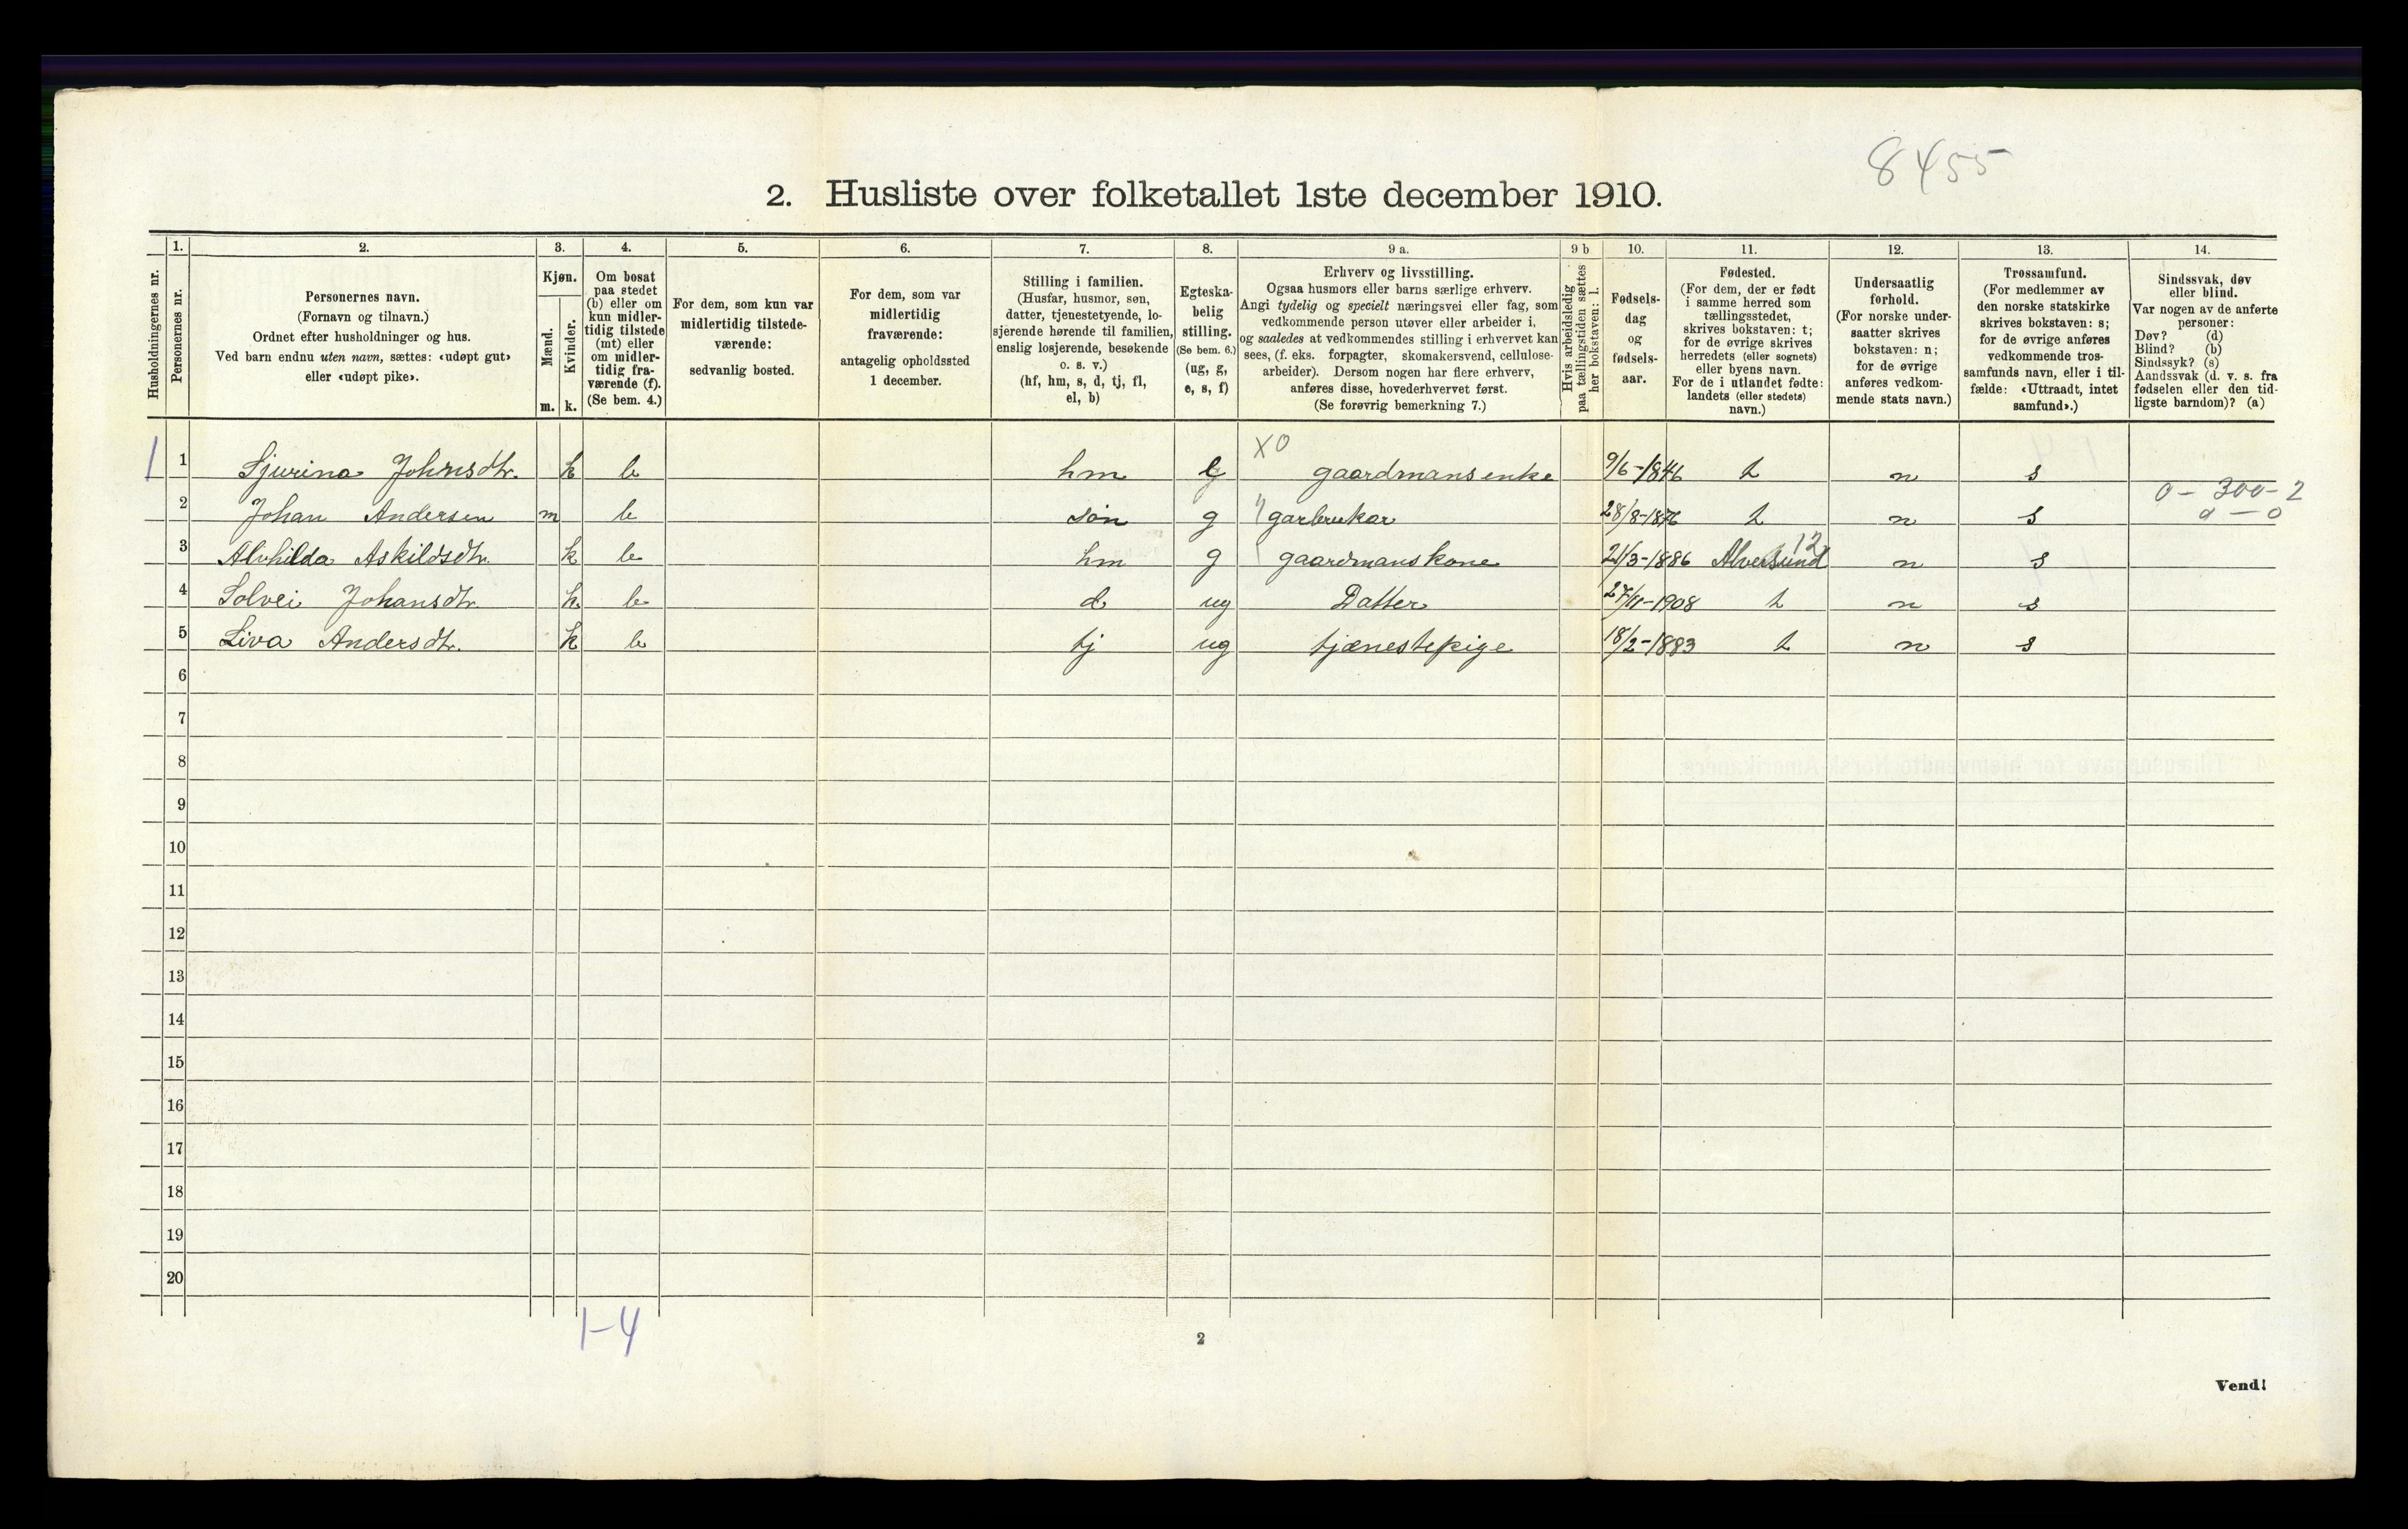 8455
2. Husliste over folketallet 1ste december 1910.
Husholdningernes nr.
1.
Personernes nr.
2.
Personernes navn.
(Fornavn og tilnavn.)
Ordnet efter husholdninger og hus.
Ved barn endnu uten navn, sættes: «udøpt gut»
eller «udøpt pike».
3.
Kjøn.
Mænd.
Kvinder.
m. k.
4.
Om bosat
paa stedet
(b) eller om
kun midler-
tidig tilstede
(mt) eller
om midler-
tidig fra-
værende (f).
(Se bem. 4.)
5.
For dem, som kun var
midlertidig tilstede-
værende:
sedvanlig bosted.
6.
For dem, som var
midlertidig
fraværende:
antagelig opholdssted
1 december.
7.
Stilling i familien.
(Husfar, husmor, søn,
datter, tjenestetyende, lo-
sjerende hørende til familien,
enslig losjerende, besøkende
o. s. v.)
(hf, hm, s, d, tj, fl,
el, b)
8.
Egteska-
belig
stilling.
(Se bem. 6.)
(ug, g,
e, s, f)
9 a.
Erhverv og livsstilling.
Ogsaa husmors eller barns særlige erhverv.
Angi tydelig og specielt næringsvei eller fag, som
vedkommende person utøver eller arbeider i,
og saaledes at vedkommendes stilling i erhvervet kan
sees, (f. eks. forpagter, skomakersvend, cellulose-
arbeider). Dersom nogen har flere erhverv,
anføres disse, hovederhvervet først.
(Se forøvrig bemerkning 7.)
9 b
Hvis arbeidsledig
paa tællingstiden sættes
her bokstaven: l.
10.
Fødsels-
dag
og
fødsels-
aar.
11.
Fødested.
(For dem, der er født
i samme herred som
tællingsstedet,
skrives bokstaven: t;
for de øvrige skrives
herredets (eller sognets)
eller byens navn.
For de i utlandet fødte:
landets (eller stedets)
navn.)
12.
Undersaatlig
forhold.
(For norske under-
saatter skrives
bokstaven: n;
for de øvrige
anføres vedkom-
mende stats navn.)
13.
Trossamfund.
(For medlemmer av
den norske statskirke
skrives bokstaven: s;
for de øvrige anføres
vedkommende tros-
samfunds navn, eller i til-
fælde: «Uttraadt, intet
samfund».)
14.
Sindssvak, døv
eller blind.
Var nogen av de anførte
personer:
Døv? (d)
Blind? (b)
Sindssyk? (s)
Aandssvak (d. v. s. fra
fødselen eller den tid-
ligste barndom)? (a)
X0
1 1 Sjurina Johnsdtr. k b hm e gaardmansenke 9/6-1846 t n s
0 - 300 - 2
2 Johan Andersen m b søn g garbrukar 28/8-1876 t n s a - 0
12
3 Alvhilda Askildsdtr. k b hm g gaardmanskone 21/3-1886 Alversund n s
4 Solvei Johansdtr. k b d ug Datter 27/11-1908 t n s
5 Liva Andersdtr. k b tj ug tjænestepige 18/2-1883 t n s
6
7
8
9
10
11
12
13
14
15
16
17
18
19
20
1-4
2
Vend!